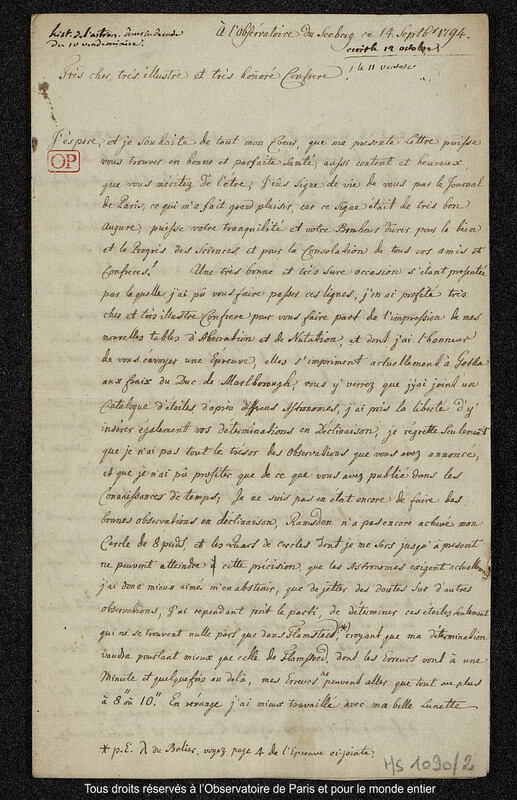 hist. de l'astron. dans la decade
du 10 vendemiaire.
À l'Observatoire du Seeberg ce 14. Septbr 1794.
ecrit le 12 octobre
le 11 ventose
Très cher, très illustre et très honoré Confrere!
J'éspere, et je souhaite de tout mon Coeur, que ma presente lettre puisse
OP
vous trouver en bonne et parfaite Santé, aussi content et heureux,
que vous méritez de l'être; J'eûs Signe de vie de vous par le Journal
de Paris, ce qui m'a fait grand plaisir, car ce Signe était de très bon
Augure; puisse votre tranquilité et votre Bonheur durer pour le bien
et le Progrès des Sciences et pour la Consolation de tous vos amis et
Confreres! Une très bonne et très sure occasion s'étant présentée
par laquelle j'ai pû vous faire passer ces lignes, j'en ai profité très
cher et très illustre Confrere pour vous faire part de l'impression de mes
nouvelles tables d'Aberration et de Nutation, et dont j'ai l'honneur
de vous envoyer une Epreuve, elles s'impriment actuellement à Gotha
aux fraix du Duc de Marlborough, vous y verrez que j'y ai joint un
Catalogue d'étoiles d'après divers Astronomes, j'ai pris la liberté d'y
insérer également vos determinations en Déclinaison, je régrette seulement
que je n'ai pas tout le tresor des Observations que vous avez annoncé,
et que je n'ai pû profiter que de ce que vous avez publié dans les
Connaissances de temps; Je ne suis pas en état encore de faire des
bonnes observations en déclinaison, Ramsden n'a pas encore achevé mon
Cercle de 8 pieds, et les quars de cercles dont je me sers jusqu'à présent
ne peuvent atteindre à cette précision, que les Astronomes exigent actuellemt
j'ai donc mieux aimé m'en abstenir, que de jetter des doutes sur d'autres
observations, J'ai cependant prit le parti, de determiner ces étoiles seulement
qui ne se trouvent nulle part que dans Flamsteed,*) croyant que ma determination
vaudra pourtant mieux que celle de Flamsteed, dont les Erreurs vont à une
Minute et quelquefois au delà, mes Erreurs ne peuvent aller que tout au plus
à 8" où 10". En révange j'ai mieux travaillé avec ma belle Lunette
* p. E. λ du Belier, voyez page 4 de l'Epreuve ci-jointe.
MS 1090/2
Tous droits réservés à l'Observatoire de Paris et pour le monde entier